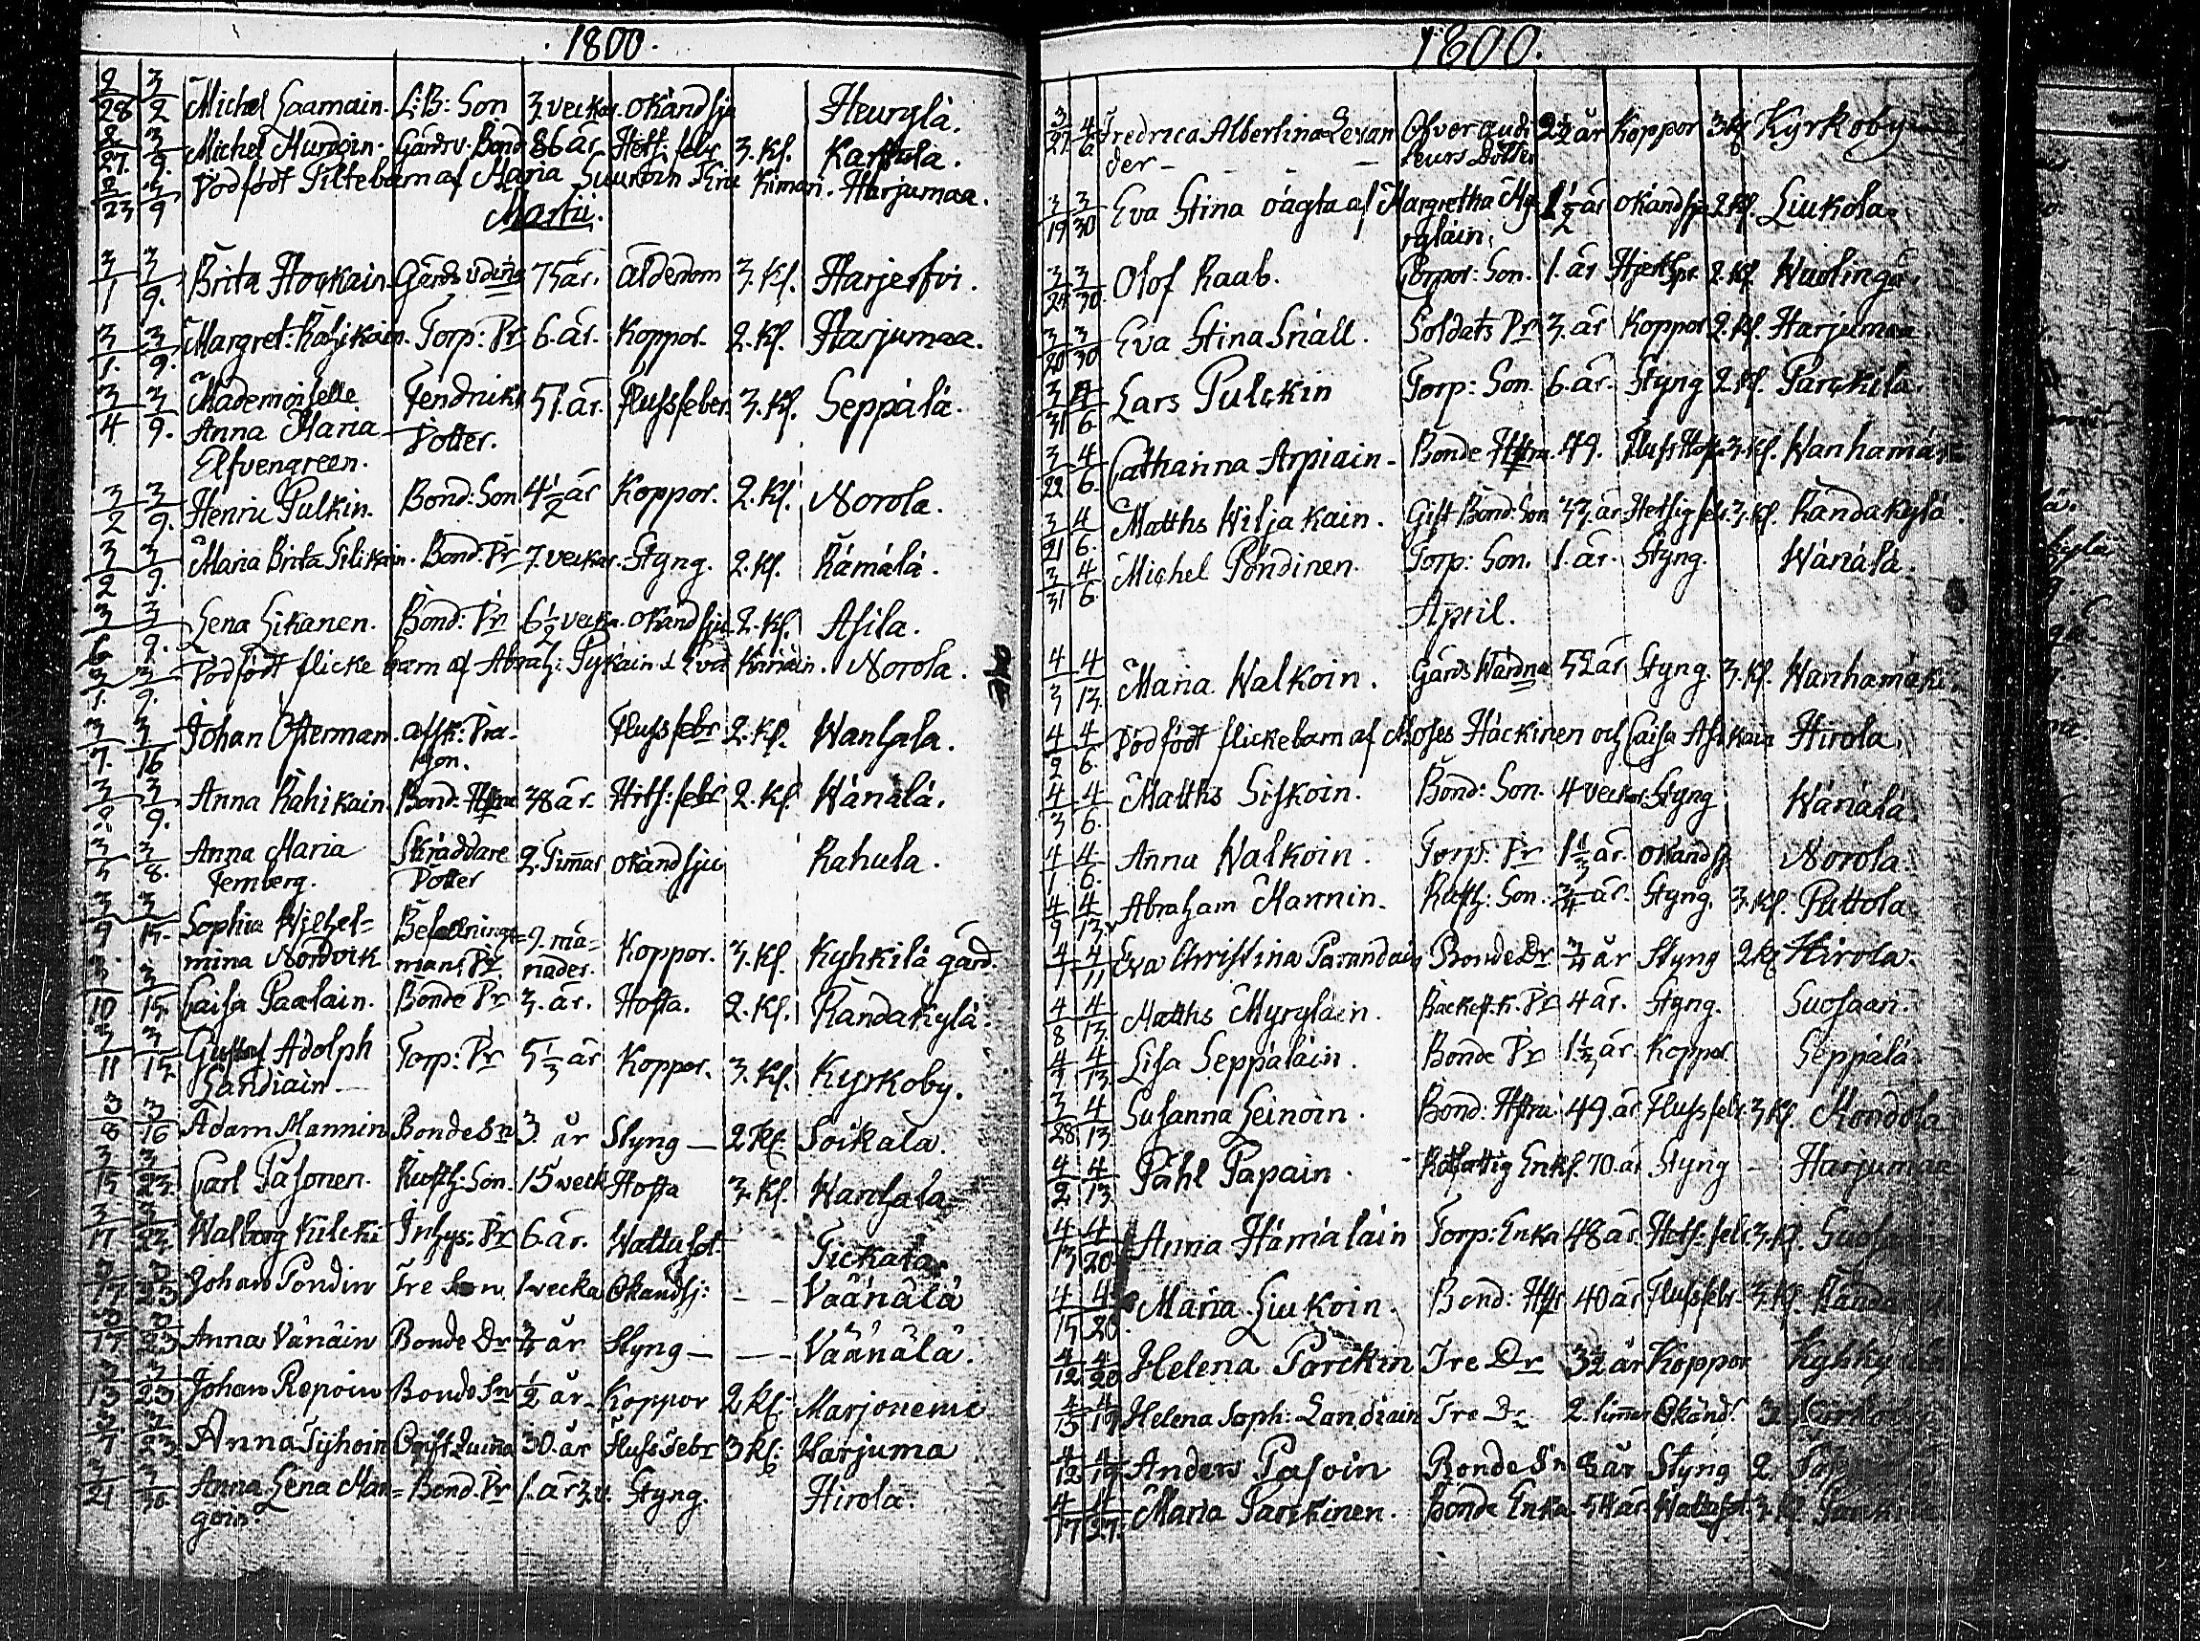 1800.
2/28 3/2 Michel Saamain. L:B: Son 3. veckor. okänd sju Heurylä.
2/27. 3/9. Michel Hundoin. Gårdv. Bond 86 år. Hets: febr 3. Kl. Karttula.
2/23 3/9 Dödfödt Piltebarn af Maria Kiman. Harjumaa.
Martii.
3/1 3/9. Brita Hoykain. 75 år. ålderdom 3. Kl. Harjerfvi.
3/1. 3/9. Margret: Rahikain. Torp: Dr 6. år. Koppor. 2. Kl. Harjumaa.
3/4 3/9. Mademoiselle Fendriks 51. år. Flussfeber. 3. Kl. Seppälä.
Anna Maria Dotter.
Elfvengreen.
3/2 3/9. Henric Pulkin. Bond: Son 4 1/2 år Koppor. 2. Kl. Norola.
3/2 3/9. Maria Brita Silikain. Bond. Dr 7. veckor. Styng. 2. Kl. Rämälä.
3/6 3/9. Lena Likanen. Bond: Dr 6 1/2 vecka. okänd sju 2. Kl. Asila.
3/1. 3/9. Dödfödt flicke barn af Abrah: Pykain & Eva Norola.
3/7. 3/16 Johan Osterman. afsk: Dra- Flussfebr 2. Kl. Wanhala.
gon.
3/2. 3/9. Anna Rahikain Bond. Hstru 38 år. Hets: febr 2. Kl. Wänälä.
3/5 3/8. Anna Maria Skräddare 2. Timmar okänd sju Rahula.
Temberg. Dotter
3/9. 3/15. Sophia Wilhel= Befallnings= 9. må= Koppor. 3. Kl. Kyhkilä gård.
mina Nordvik mans Dr nader.
3/10 3/15. Caisa Paalain. Bonde Dr 3. år. Hosta. 2. Kl. Randakylä.
3/11 3/15. Gustaf Adolph Torp: Dr 5 1/3 år Koppor. 3. Kl. Kyrkoby.
Landiain
3/8 3/16 Adam Mannin Bonde Sn 3. år Styng — 2 Kl: Soikala.
3/15 3/23. Carl Pasonen. Rusth: Son. 15 veck Hosta 3. Kl. Wanhala
3/17 3/23. Walborg Kilcki Inhys: Dr 6. år. Wattusot. Tickala
3/17 3/23 Johan Pondin Tre Son 1 vecka Okänd sj: — — Väänälä
3/17 3/23 Anna Vänäin Bonde Dr 3/4 år Styng — — — Väänälä.
3/13 3/23 Johan Repoin Bonde Sn 1/2 år Koppor 2 Kl: Marjoneme
3/7. 3/23. Anna Tyhoin Ogift Quina 30. år Fluss Febr 3 Kl: Harjuma
3/21 3/30. Anna Lena Man= Bond. Dr 1. år 3 v. Styng. Hirola.
goin.
1800.
3/27 4/6 Fredrica Albertina Lexan Öfver audi 2 1/2 år Koppor 3 Kl Kyrkoby
der — — teurs Dotter
3/19 3/30 Eva Stina oägta af Margretha My 1 1/2 år okänd sju 2 Kl. Liukola
ryläin.
3/25 3/30. Olof Raab. Corpor: Son. 1. år 2. Kl. Wuolingå.
3/20 3/30 Eva Stina Snäll. Soldats Dr 3. år Koppor 2. Kl. Harjumaa
3/31 4/6 Lars Pulckin Torp: Son. 6. år. Styng 2. Kl. Parckila.
3/22 4/6. Catharina Arpiain. Bonde Hstru. 49. Fluss Host. 3. Kl. Wanhamäki
3/21 4/6. Matths Wiljakain. Gift Bond: Son 33. år Hetsig febr. 3. Kl. Randakylä.
3/31 4/6. Michel Pöndinen. Torp: Son. 1. år. Styng. Wänälä.
April.
4/3 4/13. Maria Walkoin. Gårds Wärdna 52 år Styng. 3. Kl. Wanhamäki.
4/2 4/6. Dödfödt flickebarn af Moses Häckinen och Caisa Asikain Hirola.
4/3 4/6. Matths Siskoin. Bond: Son. 4 veckor. Styng Wänälä.
4/1 4/6. Anna Walkoin. Torp: Dr 1 1/3 år. okänd sj. Norola.
4/9 4/13. Abraham Mannin. Rusth: Son. 3/4 år. Styng. 3. Kl. Puttola.
4/7 4/11 Eva Christina Parandain Bonde Dr 3/4 år Styng 2 Kl Hirola.
4/8 4/13. Matths Myryläin. Backest. k. Dr 4 år. Styng. Suosaari.
4/7 4/13. Lisa Seppäläin. Bonde Dr 1 1/2 år. Koppor. Seppälä.
3/28 4/13. Susanna Leinoin. Bond: Hstru 49. år. Flussfebr. 3. Kl. Mondola
4/2 4/13. Påhl Papain. Enkl. 70. år Styng — Harjumaa
4/13 4/20. Anna Hämäläin Torp: Enka 48 år. Hets: febr 3. Kl.
4/15 4/20. Maria Liukoin. Bond: Hstr 40 år Flussfebr. 3. Kl.
4/12 4/20 Helena Parckin Tre Dr 3 1/2 år Koppor
4/15 4/19 Helena Soph: Landiain Tre Dr 2. timmar Okänd. 3
4/12 4/19 Anders Pasoin Bonde Sn år Styng 2
4/17 4/27. Maria Parckinen. Bonde Enka 54 år. Wattusot. 3. Kl.